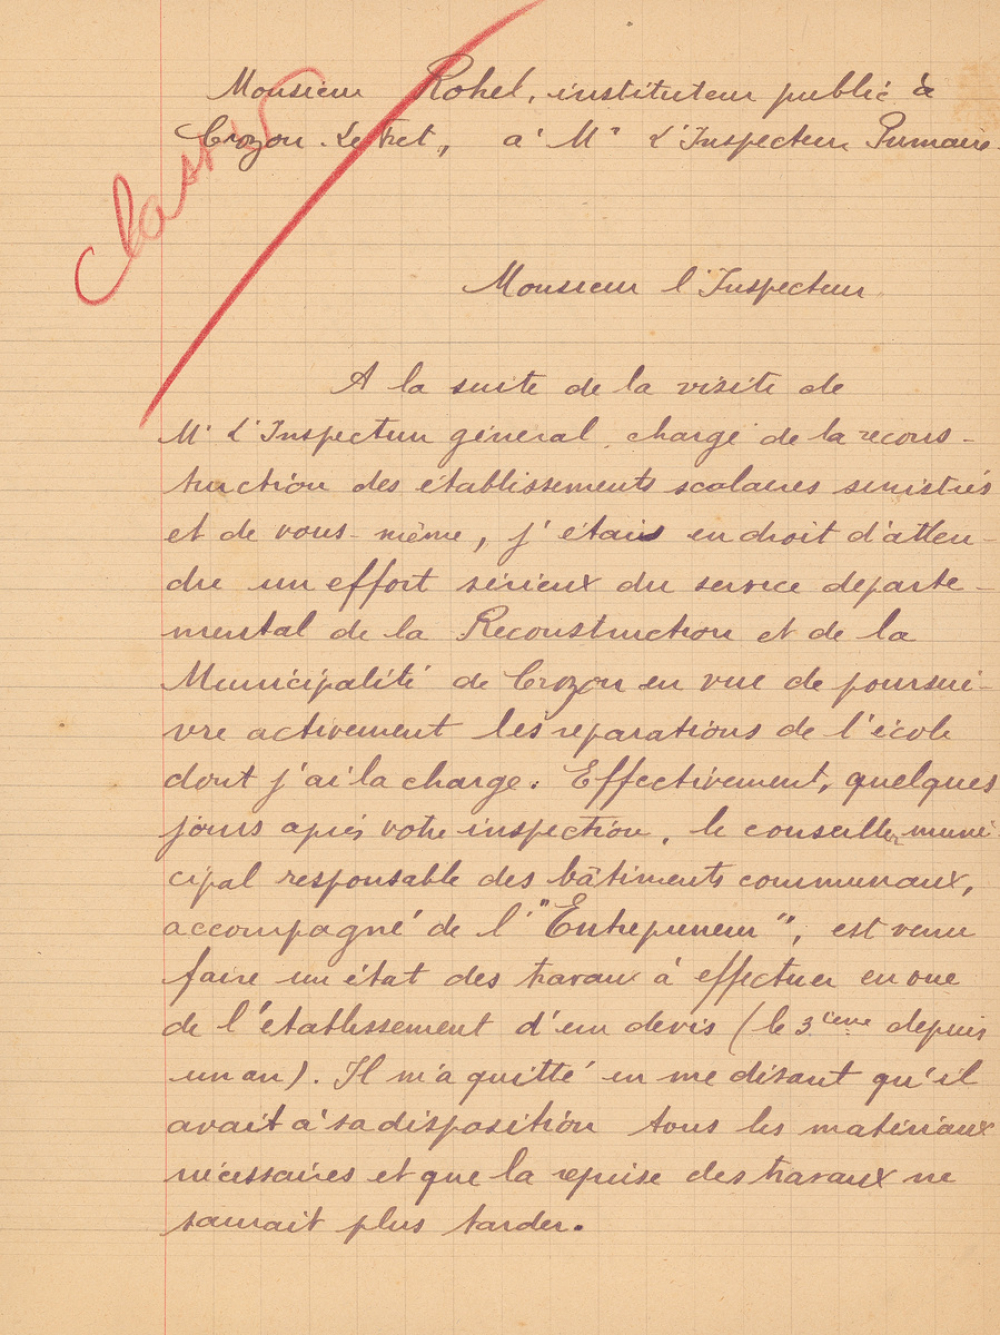 Monsieur Rohel, instituteur public à
Crozon-Le Fret, à Mr L'Inspecteur Primaire.
Classer
Monsieur l'Inspecteur
A la suite de la visite de
Mr L'Inspecteur général, chargé de la recons-
truction des établissements scolaires sinistrés
et de vous-même, j'étais en droit d'atten-
dre un effort sérieux du service départe-
mental de la Reconstruction et de la
Municipalité de Crozon en vue de poursui-
vre activement les réparations de l'école
dont j'ai la charge. Effectivement, quelques
jours après votre inspection, le conseiller muni-
cipal responsable des bâtiments communaux,
accompagné de l'"Entrepreneur", est venu
faire un état des travaux à effectuer en vue
de l'établissement d'un devis (le 3ième depuis
un an). Il m'a quitté en me disant qu'il
avait à sa disposition tous les matériaux
nécessaires et que la reprise des travaux ne
saurait plus tarder.